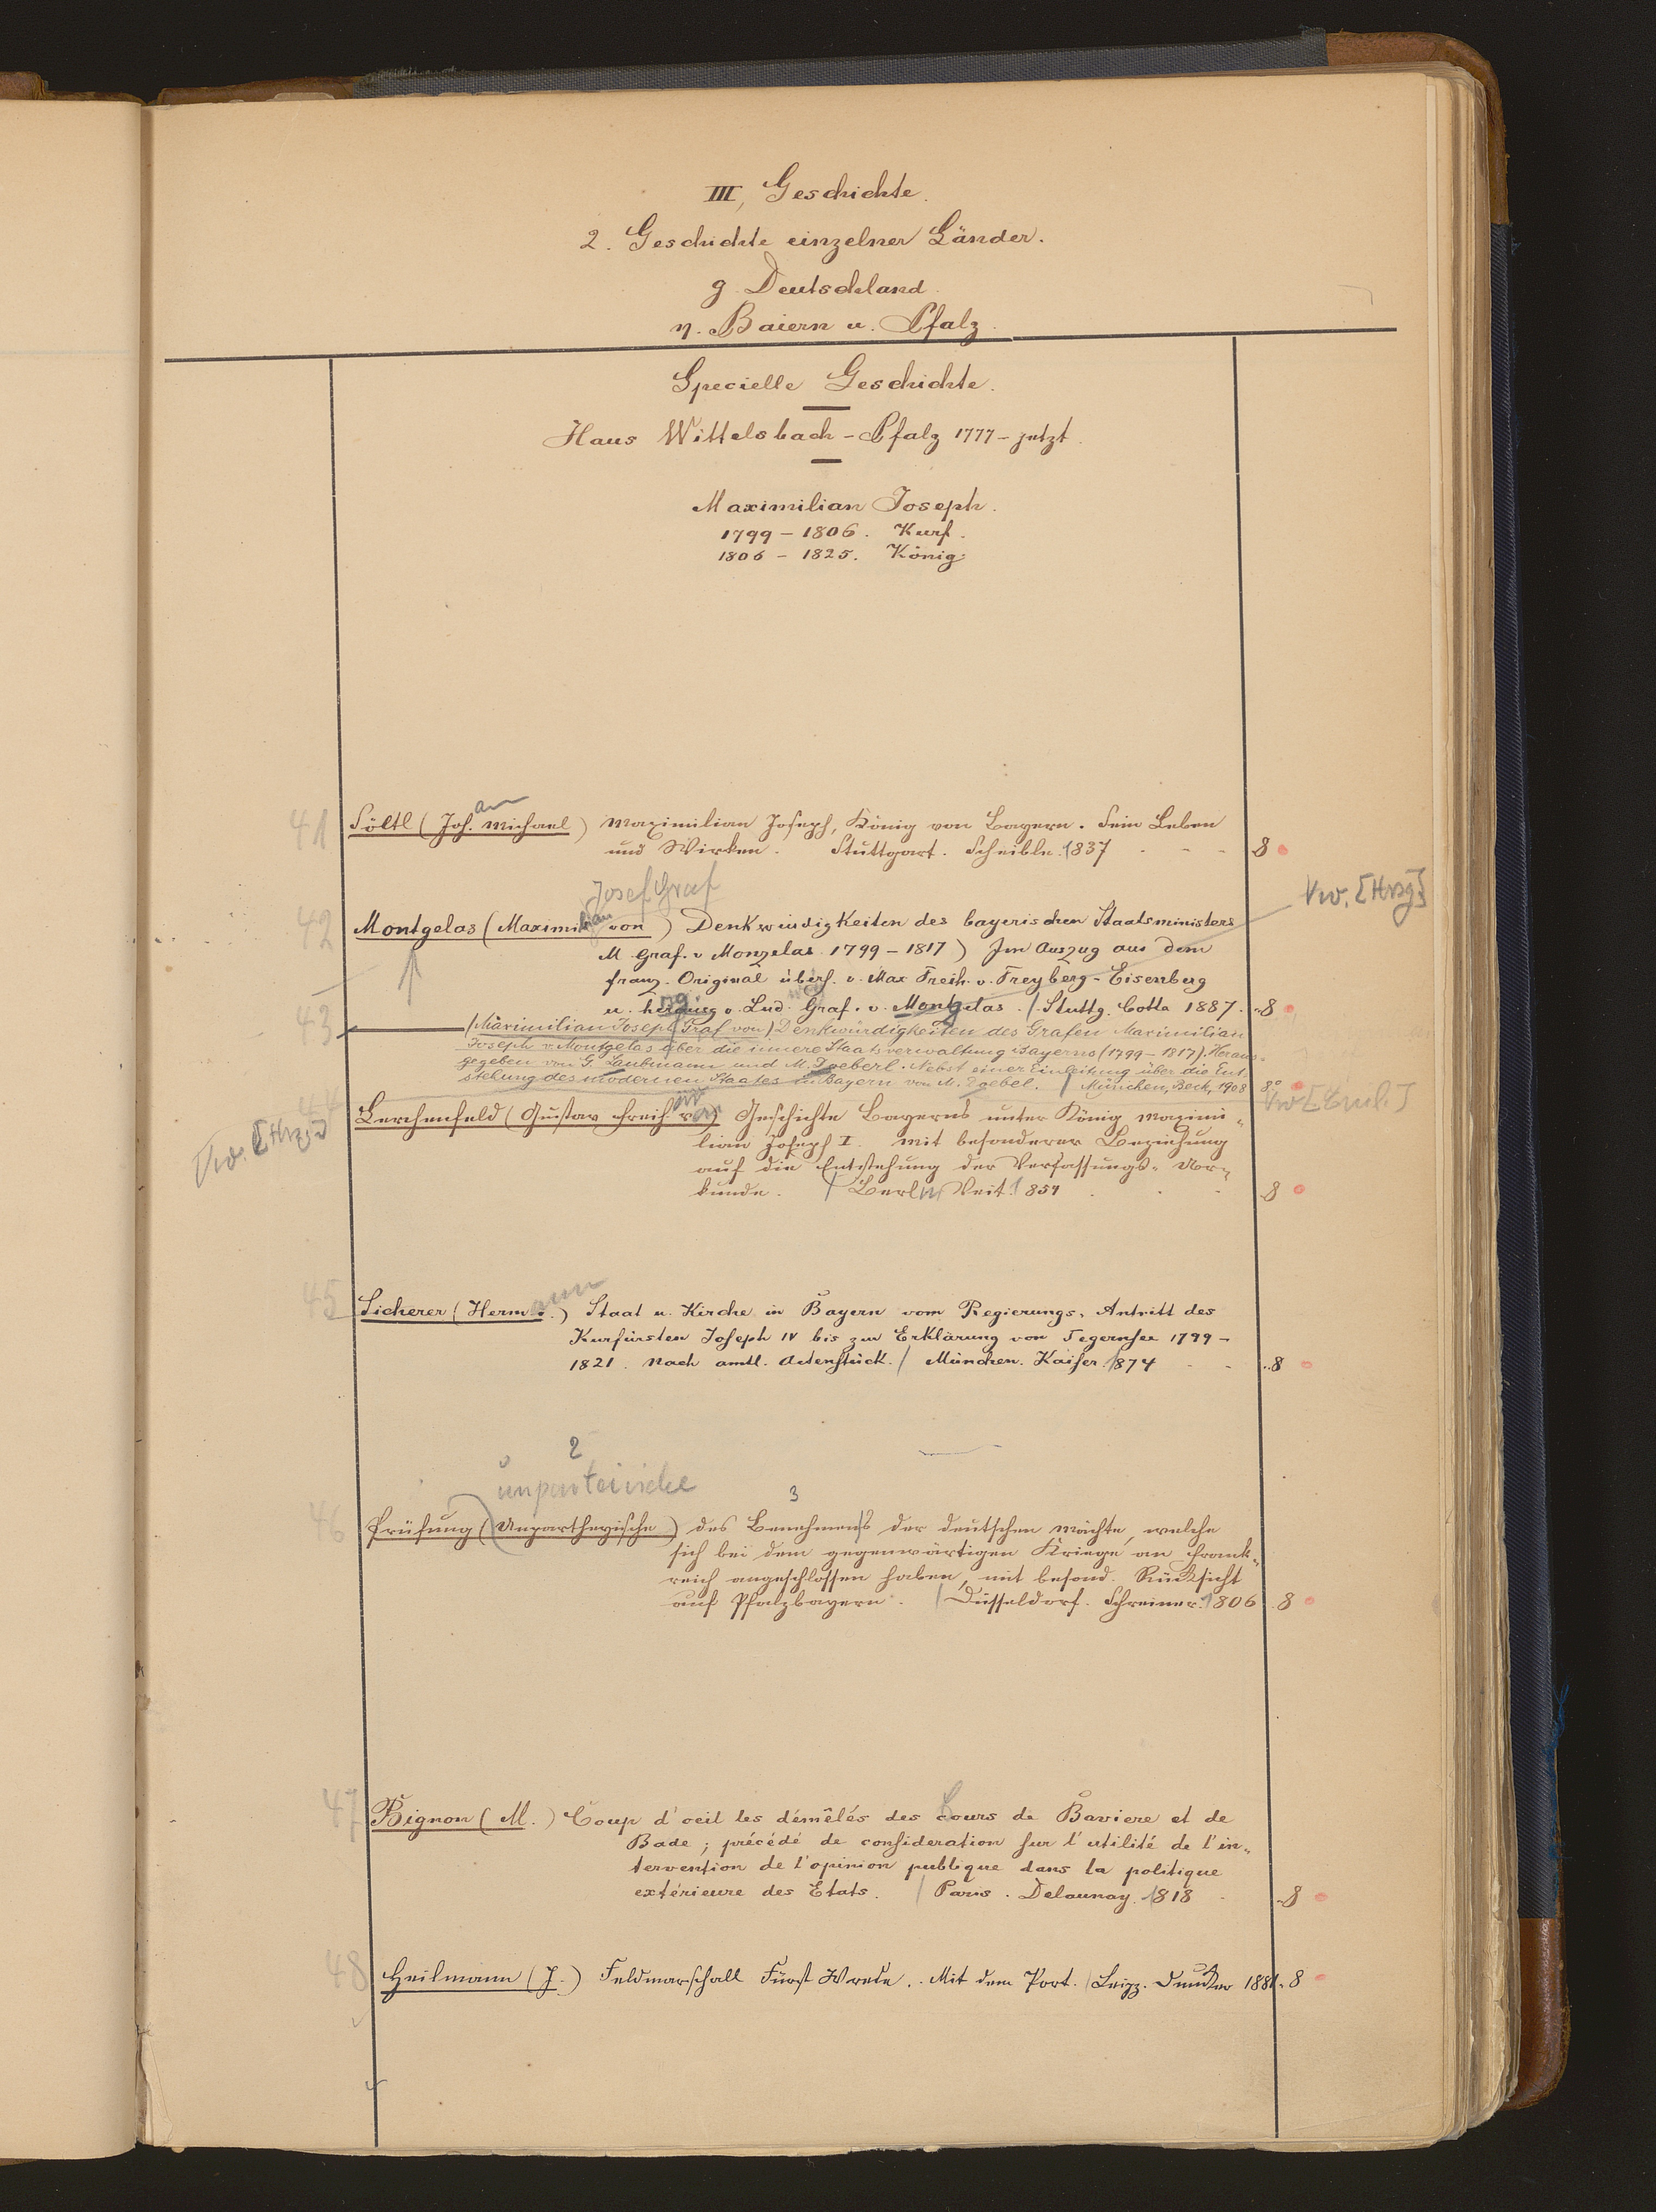 III, Geschichte.
2. Geschichte einzelner Länder.
g. Deutschland.
η. Baiern u. Pfalz.
Specielle Geschichte.
Haus Wittelsbach - Pfalz 1777 - jetzt.
Maximilian Joseph.
1799 - 1806. Kurf.
1806 - 1825. König
41 Söltl (Joh.ann Michael) Maximilian Joseph, König von Bayern. Sein Leben
und Wirken. Stuttgart. Scheible. 1837 - - - 8
Josef Graf
Vw. [Hrsg]
42 Montgelas (Maximilian von) Denkwürdigkeiten des bayerischen Staatsministers
M. Graf. v Monzelas 1799 - 1817) Im Auszug aus dem
franz. Original übers. v. Max Freih. v. Freyberg - Eisenberg
u. herausg v. Lud. Graf. v. Montgelas. / Stuttg. Cotta 1887. 8
43 — (Maximilian Joseph Graf von) Denkwürdigkeiten des Grafen Maximilian
Joseph v. Montgelas über die innere Staatsverwaltung Bayerns (1799 - 1817). Heraus=
gegeben von G. Laubmann und M. Doeberl. Nebst einer Einleitung über die Ent-
stehung des modernen Staates in Bayern von M. Doebel. / München, Beck, 1908 8°
Vw. [Hrsg]
Vw [Einl.]
44 Lerchenfeld (Gustav Freih. von) Geschichte Bayerns unter König Maximi-
lian Joseph I. mit besonderer Beziehung
auf die Entstehung der Verfassungs-Ur-
kunde. / Berlin Veit. 1854 . . . 8
45 Sicherer (Hermann.) Staat u. Kirche in Bayern vom Regierungs-Antritt des
Kurfürsten Joseph IV bis zur Erklärung von Tegernsee 1799 -
1821. Nach amtl. Actenstück. / München. Kaiser. 1874 - - 8
2
unparteiische
3
46 Prüfung (Unpartheyische) des Benehmens der deutschen Mächte, welche
sich bei dem gegenwärtigen Kriege an Frank-
reich angeschlossen haben, mit besond. Rücksicht
auf Pfalzbayern. / Düsseldorf. Schreiner. 1806 8
47 Bignon (M.) Coup d'oeil les démêlés des Cours de Baviere et de
Bade; précédé de consideration sur l'utilité de l'in-
tervention de l'opinion publique dans la politique
extérieure des Etats. / Paris. Delaunay. 1818 - 8
48 Heilmann (J.) Feldmarschall Fürst Wrede. Mit dem Port. / Leipz. Duncker 1881. 8